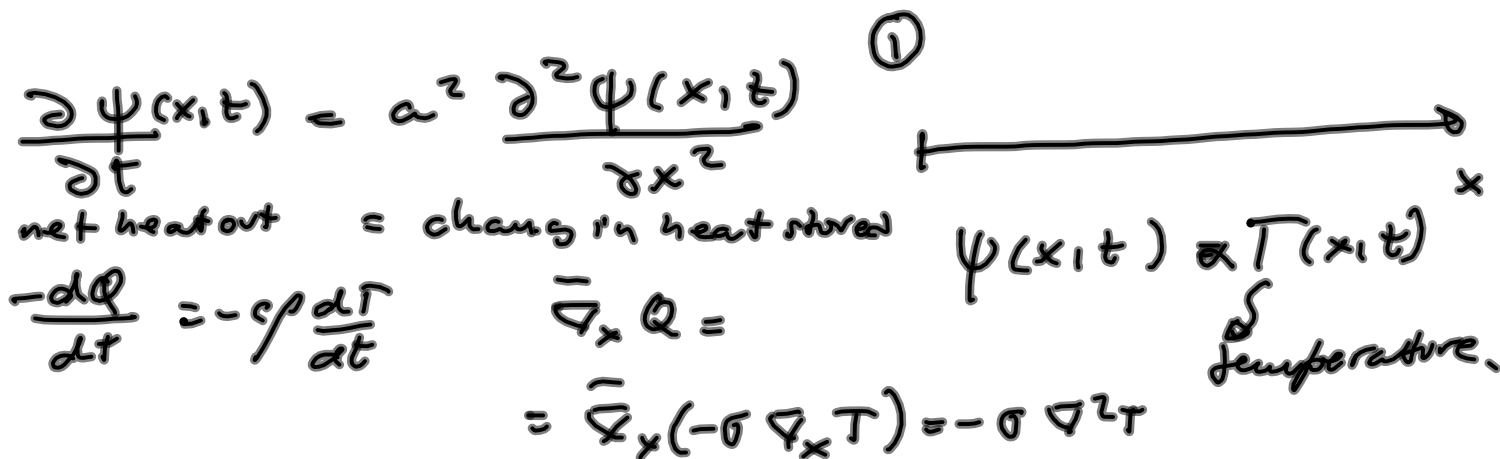 ①
∂ψ(x,t)/∂t = a² ∂²ψ(x,t)/∂x²
x
net heat out = chang in heat stored
ψ(x,t) ∝ T(x,t)
temperature.
-dQ/dt = -cρ dT/dt
∇̄ₓ Q =
= ∇̄ₓ(-σ ∇ₓ T) = -σ ∇²T